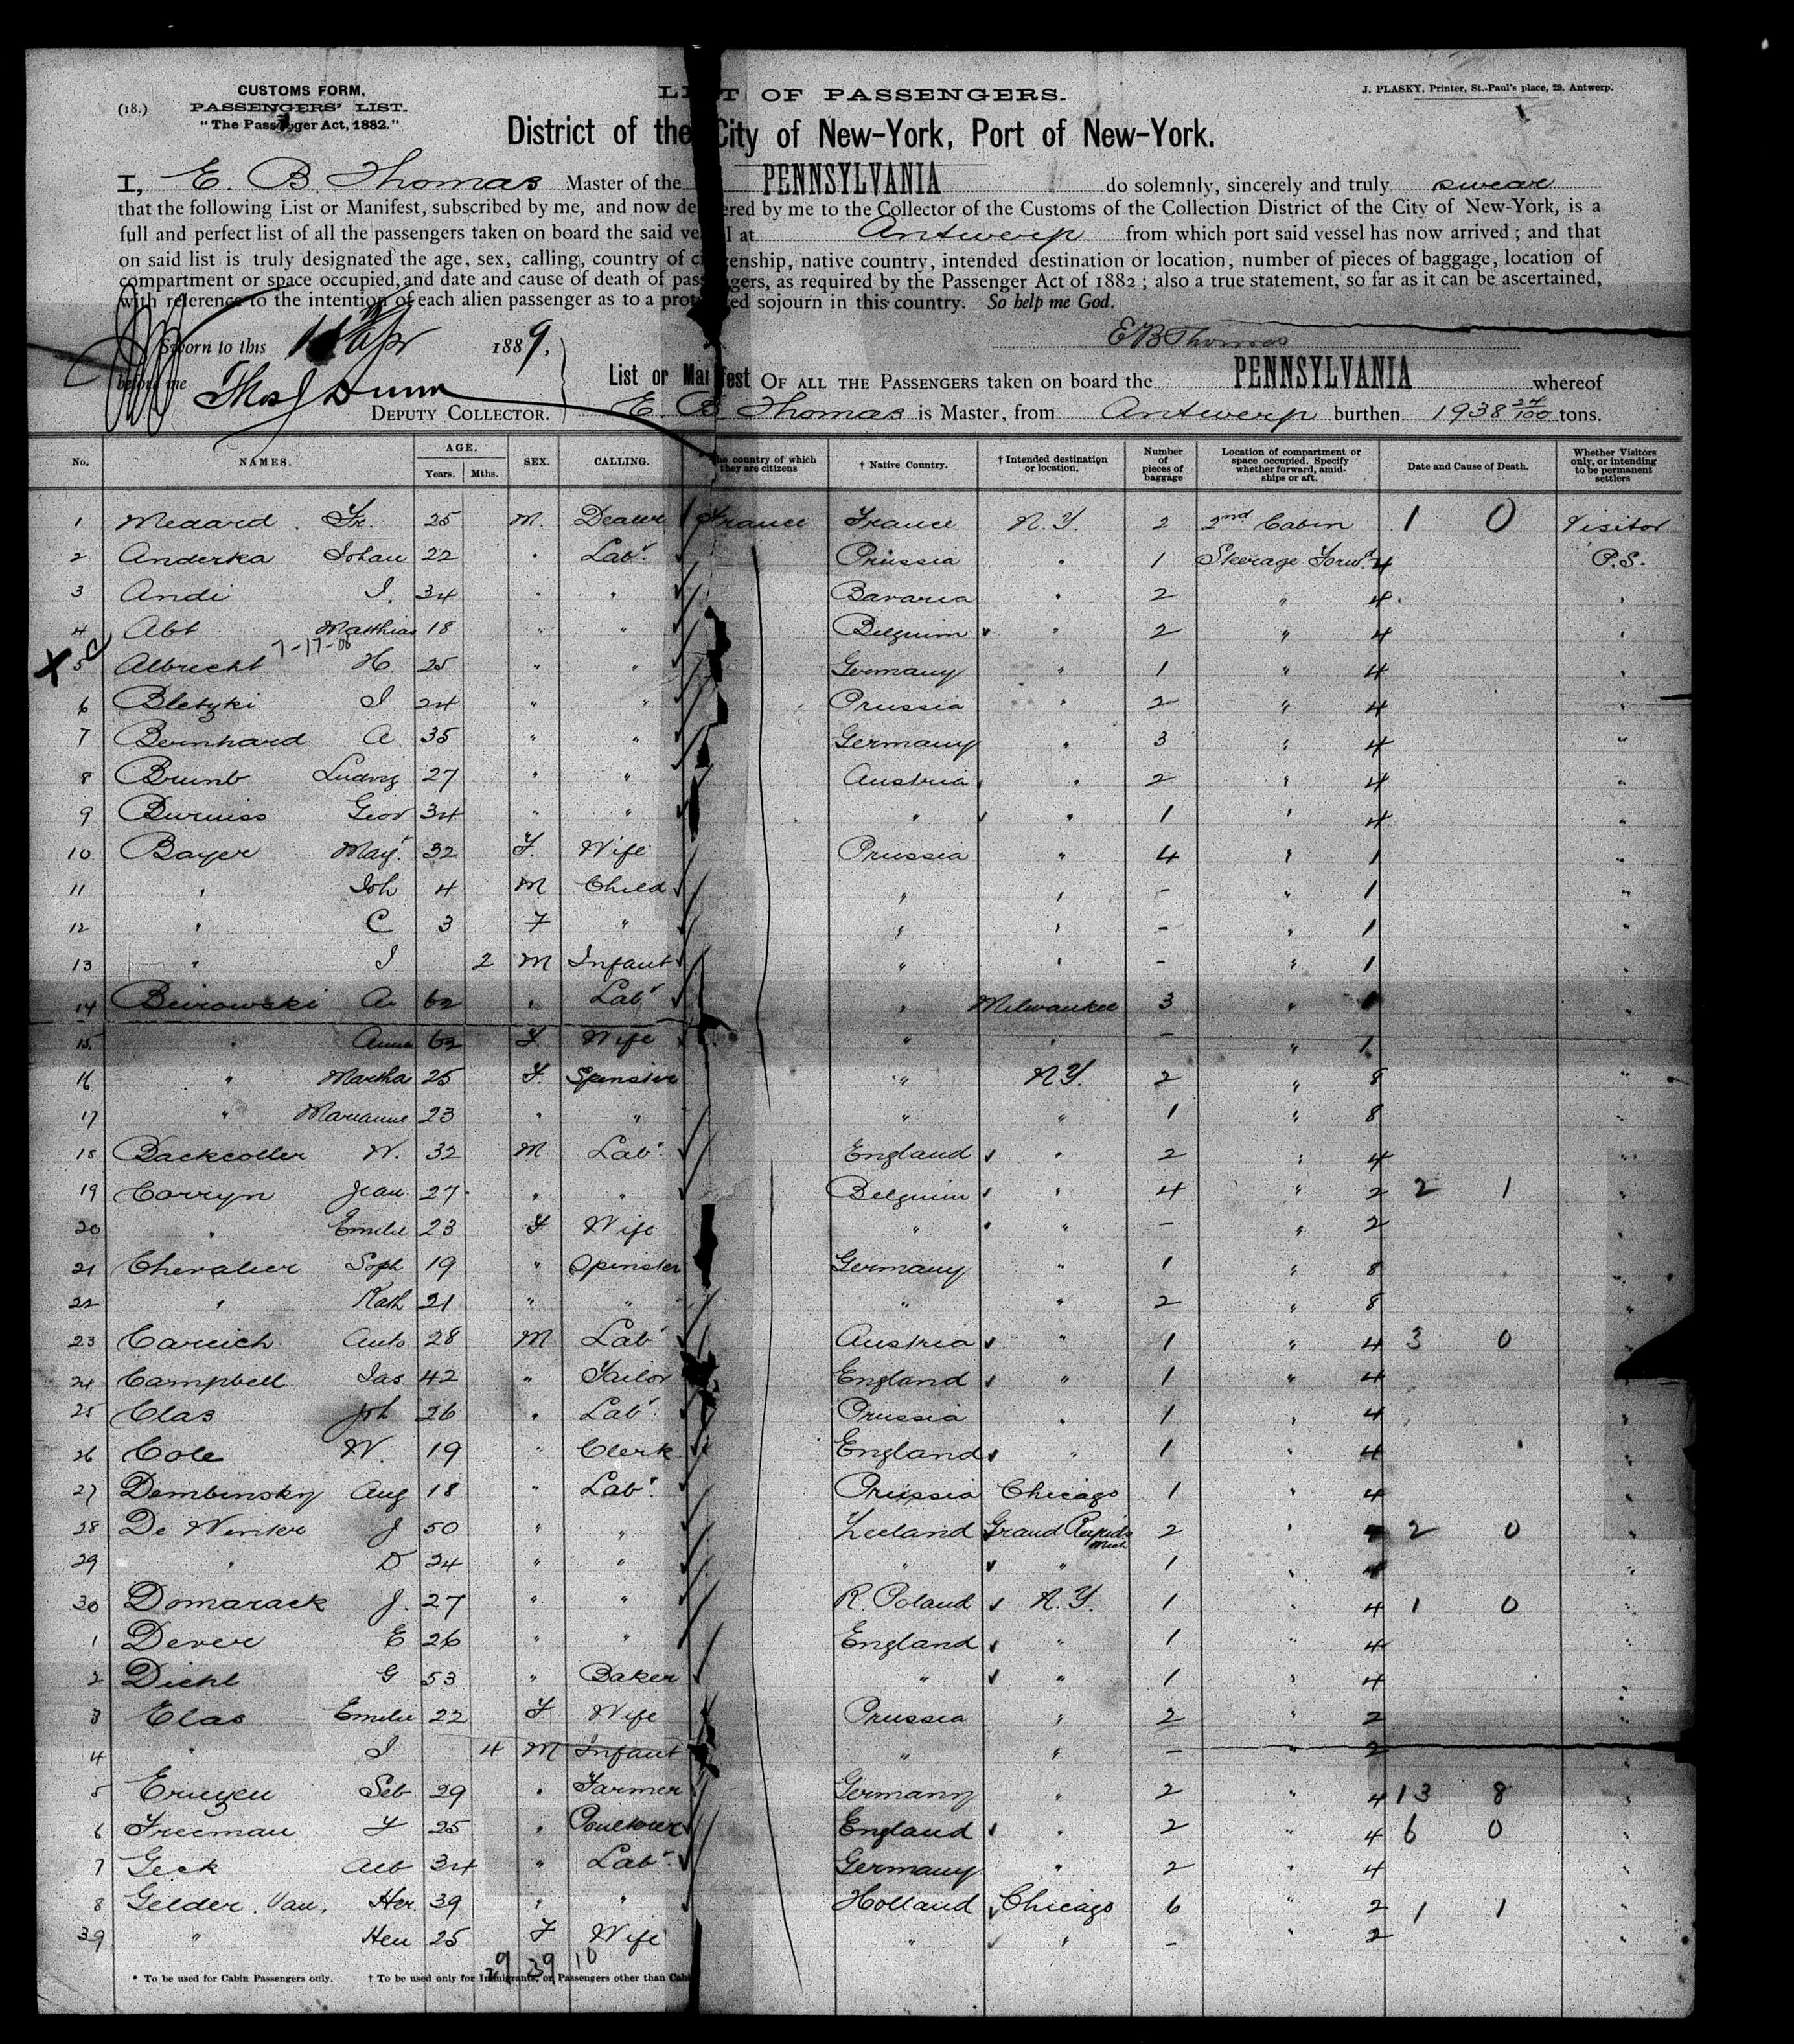 (18.)
CUSTOMS FORM.
PASSENGERS' LIST.
"The Passenger Act, 1882."
LIST OF PASSENGERS.
J. PLASKY, Printer, St.-Paul's place, 29. Antwerp.
District of the City of New-York, Port of New-York.
I, E. B. Thomas Master of the PENNSYLVANIA do solemnly, sincerely and truly swear
that the following List or Manifest, subscribed by me, and now delivered by me to the Collector of the Customs of the Collection District of the City of New-York, is a
full and perfect list of all the passengers taken on board the said vessel at Antwerp from which port said vessel has now arrived; and that
on said list is truly designated the age, sex, calling, country of citizenship, native country, intended destination or location, number of pieces of baggage, location of
compartment or space occupied, and date and cause of death of passengers, as required by the Passenger Act of 1882; also a true statement, so far as it can be ascertained,
with reference to the intention of each alien passenger as to a protracted sojourn in this country. So help me God.
Sworn to this Apr 1889,
E B Thomas
before me Thos J Dunn
DEPUTY COLLECTOR.
List or Manifest OF ALL THE PASSENGERS taken on board the PENNSYLVANIA whereof
E. B. Thomas is Master, from Antwerp burthen 1938 27/100 tons.
No. NAMES. AGE. Years. Mths. SEX. CALLING. The country of which they are citizens † Native Country. † Intended destination or location. Number of pieces of baggage Location of compartment or space occupied. Specify whether forward, amidships or aft. Date and Cause of Death. Whether Visitors only, or intending to be permanent settlers
1 Medard Fr. 25 M. Dealer France France N.Y. 2 2nd Cabin 1 0 Visitor
2 Anderka Johan 22 " Labr Prussia " 1 Steerage Forwd 4 P.S.
3 Andi J. 34 " " Bavaria " 2 " 4 "
4 Abt Matthias 18 " " Belguim " 2 " 4 "
7-17-06
X C 5 Albrecht H. 25 " " Germany " 1 " 4 "
6 Bletzki J 24 " " Prussia " 2 " 4 "
7 Bernhard A 35 " " Germany " 3 " 4 "
8 Brumb Ludwig 27 " " Austria " 2 " 4 "
9 Burniss Giov 34 " " " " 1 " 4 "
10 Bayer Magt 32 F. Wife Prussia " 4 " 1 "
11 " Joh 4 M Child " " - " 1 "
12 " C 3 F " " " - " 1 "
13 " J 2 M Infant " " - " 1 "
14 Beirowski A. 62 " Labr " Milwaukee 3 " 1 "
15 " Anna 63 F. Wife " " - " 1 "
16 " Martha 25 F. Spinster " N.Y. 2 " 8 "
17 " Marianne 23 " " " " 1 " 8 "
18 Backcoller W. 32 M Labr England " 2 " 4 "
19 Corryn Jean 27 " " Belguim " 4 " 2 2 1 "
20 " Emelie 23 F Wife " " - " 2 "
21 Chevalier Soph 19 " Spinster Germany " 1 " 8 "
22 " Kath 21 " " " " 2 " 8 "
23 Caruich Anto 28 M Labr Austria " 1 " 4 3 0 "
24 Campbell Jas 42 " Tailor England " 1 " 4 "
25 Clas Joh 26 " Labr Prussia " 1 " 4 "
26 Cole W. 19 " Clerk England " 1 " 4 "
27 Dembinsky Aug 18 " Labr Prussia Chicago 1 " 4 "
28 De Winter J 50 " " Zeeland Grand Rapids Mich 2 " 4 2 0 "
29 " D 24 " " " " 1 " 4 "
30 Domarack J. 27 " " R. Poland N.Y. 1 " 4 1 0 "
1 Dever E 26 " " England " 1 " 4 "
2 Diehl G 53 " Baker " " 1 " 4 "
3 Elas Emelie 22 F Wife Prussia " 2 " 2 "
4 " J 4 M Infant " " - " 2 "
5 Eruzen Seb 29 " Farmer Germany " 2 " 4 13 8 "
6 Freeman F 25 " Poulterer England " 2 " 4 6 0 "
7 Geck Alb 34 " Labr Germany " 2 " 4 "
8 Gelder, Van, Her. 39 " " Holland Chicago 6 " 2 1 1 "
39 " Hen 25 F Wife " " - " 2 "
29 39 10
* To be used for Cabin Passengers only. † To be used only for Immigrants, or Passengers other than Cabin